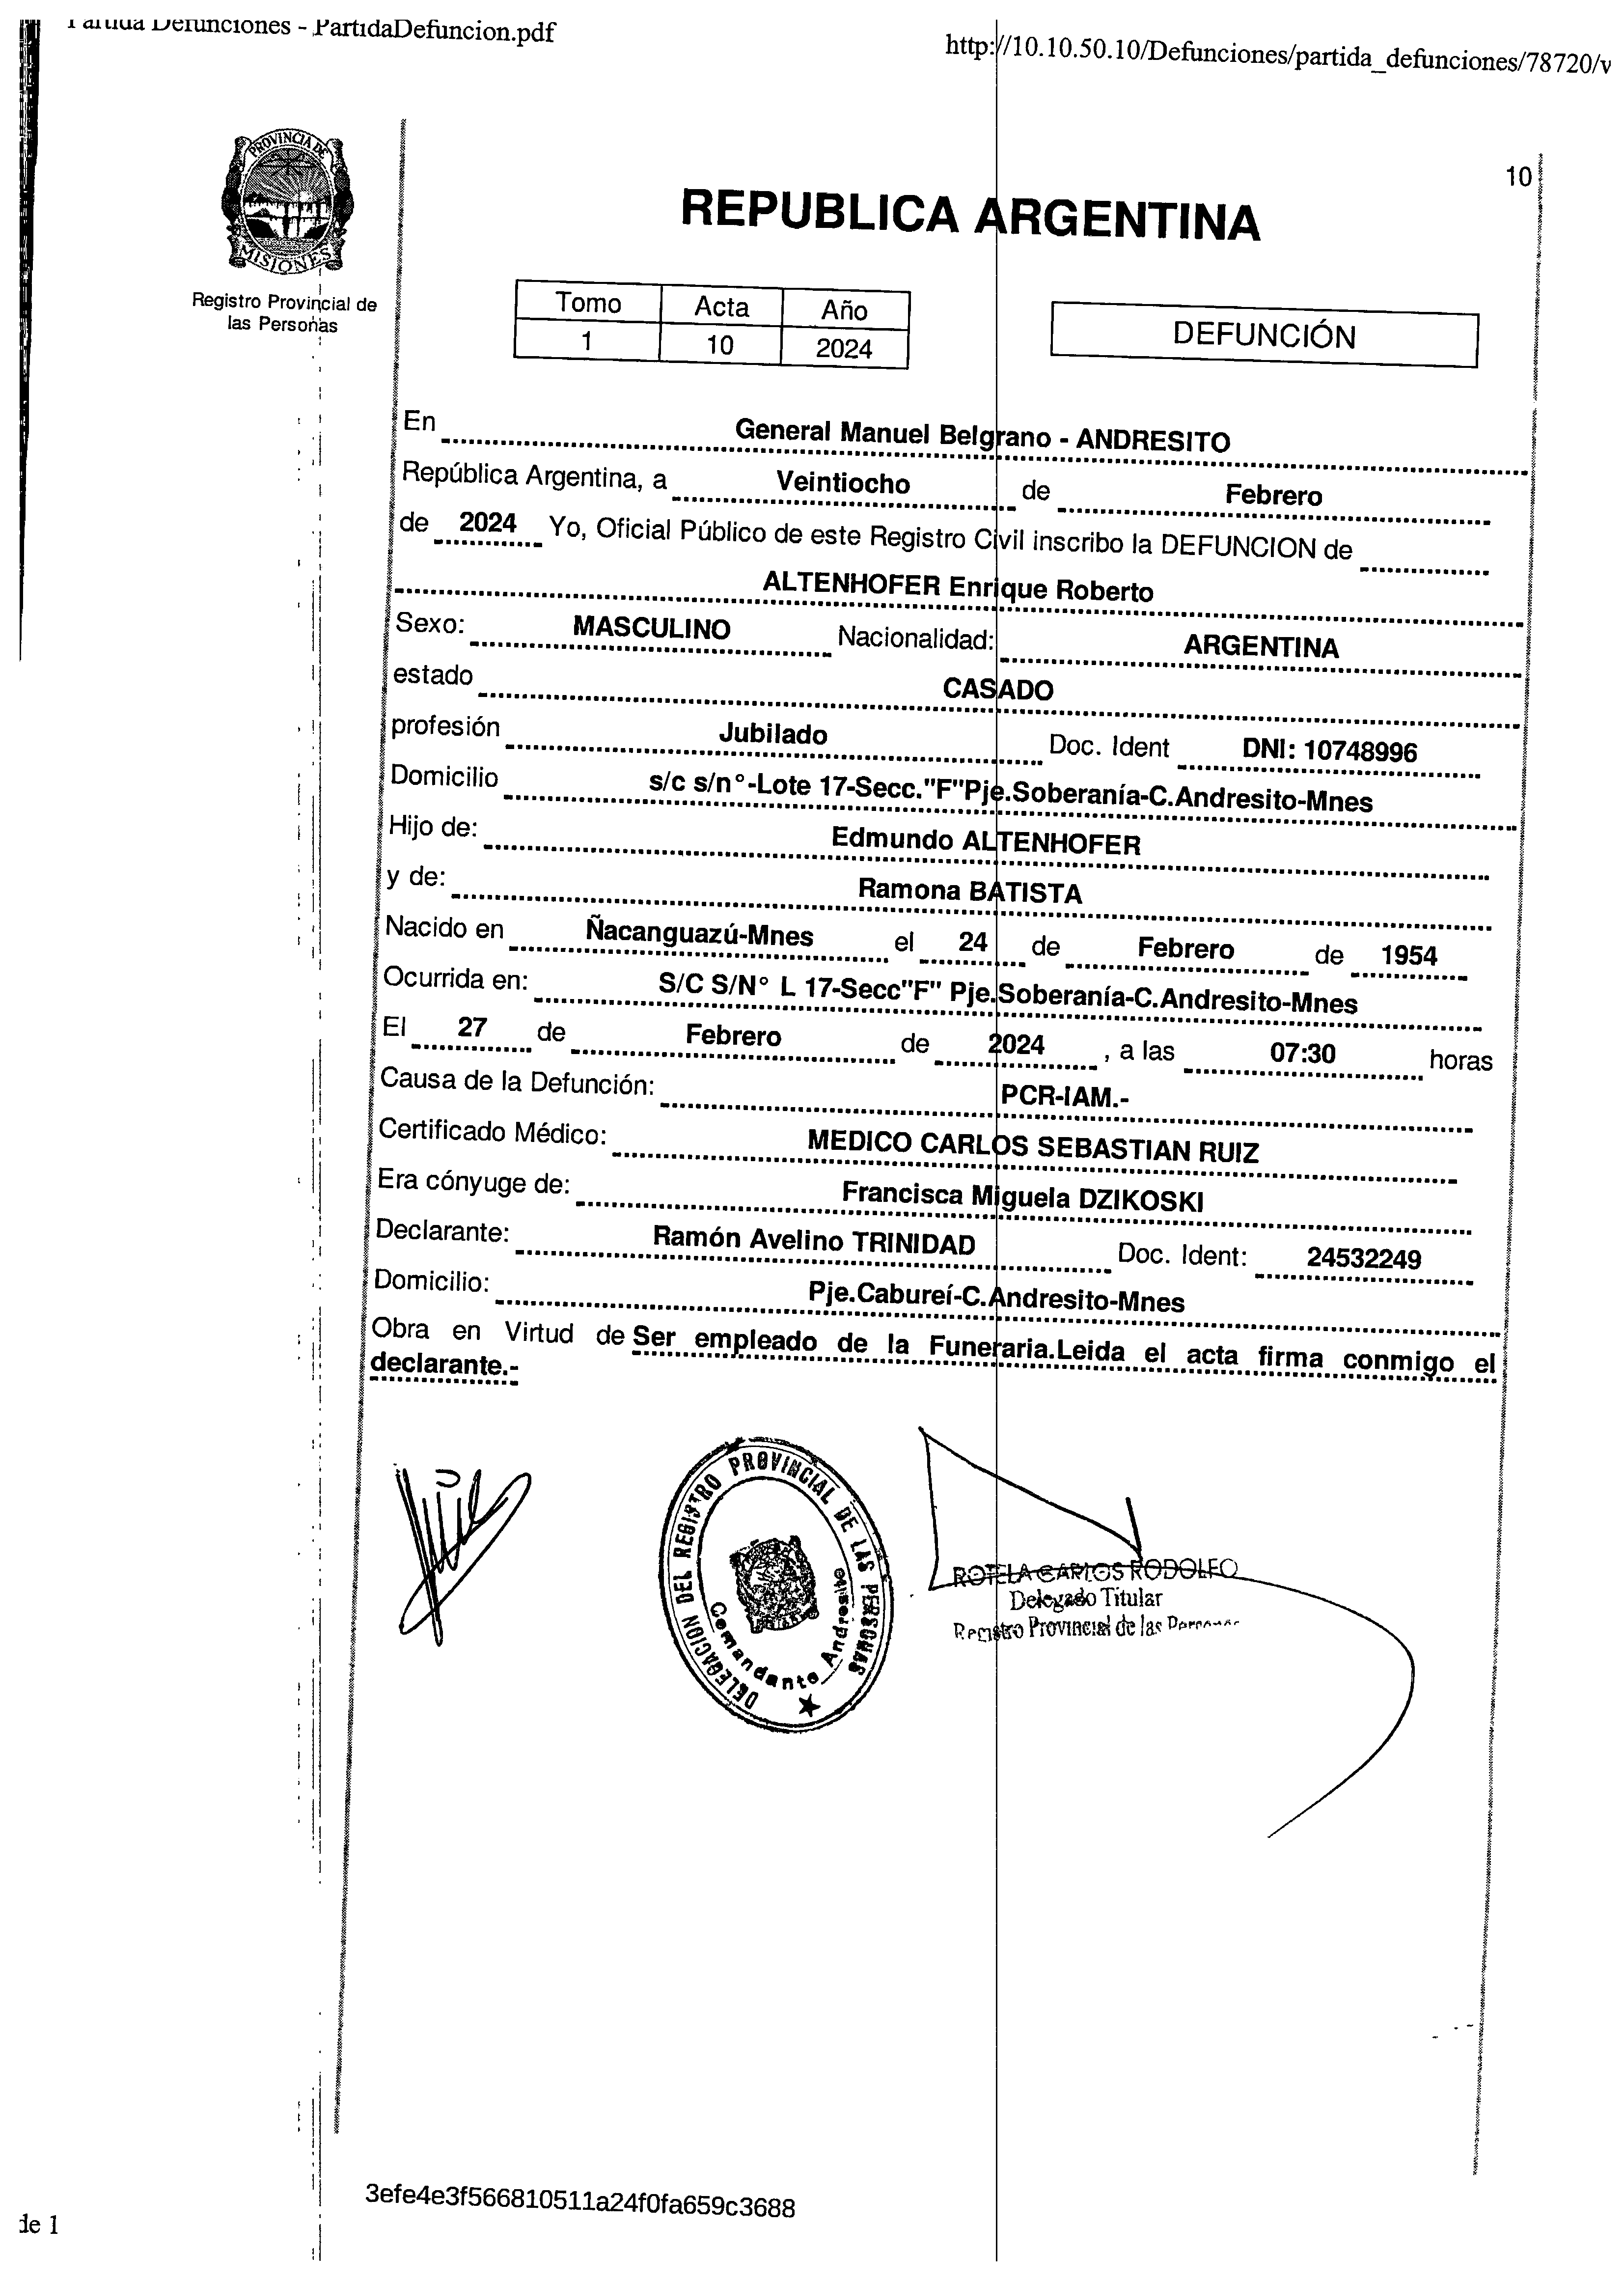 Partida Defunciones - PartidaDefuncion.pdf
http://10.10.50.10/Defunciones/partida_defunciones/78720/v
PROVINCIA DE
MISIONES
Registro Provincial de
las Personas
10
REPUBLICA ARGENTINA
Tomo Acta Año
1 10 2024
DEFUNCIÓN
En General Manuel Belgrano - ANDRESITO
República Argentina, a Veintiocho de Febrero
de 2024 Yo, Oficial Público de este Registro Civil inscribo la DEFUNCION de
ALTENHOFER Enrique Roberto
Sexo: MASCULINO Nacionalidad: ARGENTINA
estado CASADO
profesión Jubilado Doc. Ident DNI: 10748996
Domicilio s/c s/n°-Lote 17-Secc."F"Pje.Soberanía-C.Andresito-Mnes
Hijo de: Edmundo ALTENHOFER
y de: Ramona BATISTA
Nacido en Ñacanguazú-Mnes el 24 de Febrero de 1954
Ocurrida en: S/C S/N° L 17-Secc"F" Pje.Soberanía-C.Andresito-Mnes
El 27 de Febrero de 2024 , a las 07:30 horas
Causa de la Defunción: PCR-IAM.-
Certificado Médico: MEDICO CARLOS SEBASTIAN RUIZ
Era cónyuge de: Francisca Miguela DZIKOSKI
Declarante: Ramón Avelino TRINIDAD Doc. Ident: 24532249
Domicilio: Pje.Cabureí-C.Andresito-Mnes
Obra en Virtud de Ser empleado de la Funeraria.Leida el acta firma conmigo el
declarante.-
DELEGACION DEL REGISTRO PROVINCIAL DE LAS PERSONAS
Comandante Andresito
ROTELA CARLOS RODOLFO
Delegado Titular
Registro Provincial de las Personas
3efe4e3f566810511a24f0fa659c3688
de 1